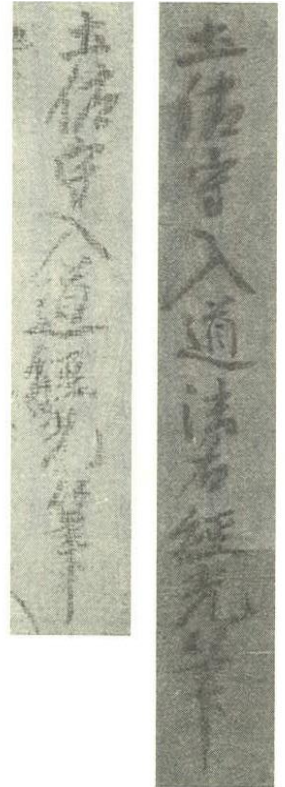 土佐守入道法名經光筆
土佐守入道經光筆